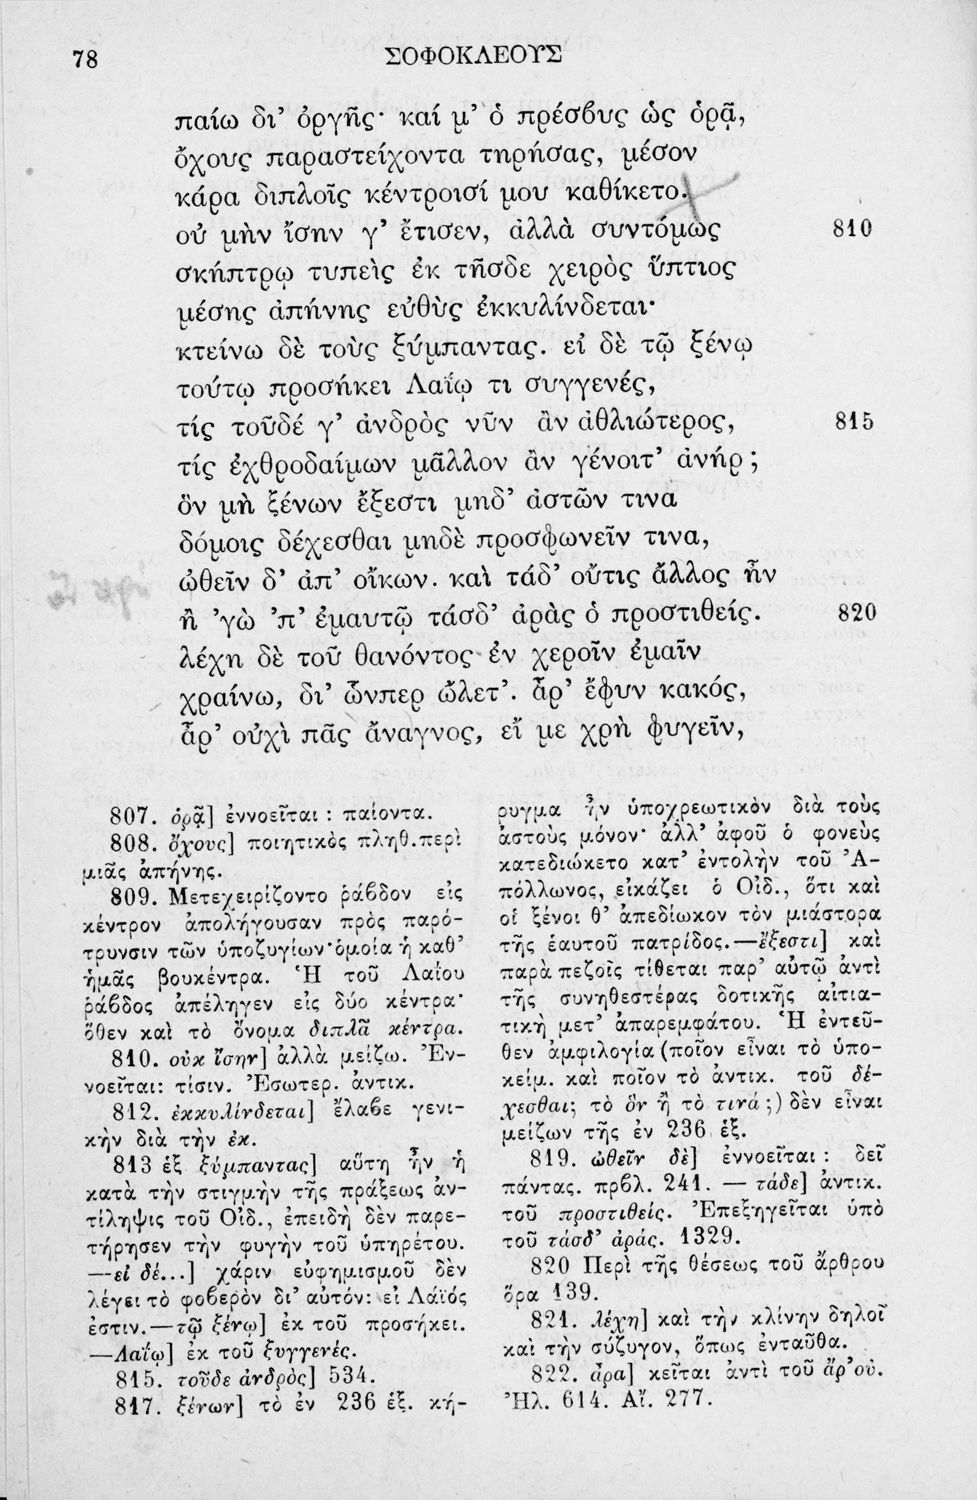 78
ΣΟΦΟΚΛΕΟΥΣ
παίω δι’ ὀργῆς· καί μ’ ὁ πρέσβυς ὡς ὁρᾷ,
ὄχους παραστείχοντα τηρήσας, μέσον
κάρα διπλοῖς κέντροισί μου καθίκετο.
οὐ μὴν ἴσην γ’ ἔτισεν, ἀλλὰ συντόμως 810
σκήπτρῳ τυπεὶς ἐκ τῆσδε χειρὸς ὕπτιος
μέσης ἀπήνης εὐθὺς ἐκκυλίνδεται·
κτείνω δὲ τοὺς ξύμπαντας. εἰ δὲ τῷ ξένῳ
τούτῳ προσήκει Λαΐῳ τι συγγενές,
τίς τοῦδέ γ’ ἀνδρὸς νῦν ἂν ἀθλιώτερος, 815
τίς ἐχθροδαίμων μᾶλλον ἂν γένοιτ’ ἀνήρ;
ὃν μὴ ξένων ἔξεστι μηδ’ ἀστῶν τινα
δόμοις δέχεσθαι μηδὲ προσφωνεῖν τινα,
ὠθεῖν δ’ ἀπ’ οἴκων. καὶ τάδ’ οὔτις ἄλλος ἦν
ἢ ’γὼ ’π’ ἐμαυτῷ τάσδ’ ἀρὰς ὁ προστιθείς. 820
λέχη δὲ τοῦ θανόντος ἐν χεροῖν ἐμαῖν
χραίνω, δι’ ὧνπερ ὤλετ’. ἆρ’ ἔφυν κακός,
ἆρ’ οὐχὶ πᾶς ἄναγνος, εἴ με χρὴ φυγεῖν,
807. ὁρᾷ] ἐννοεῖται : παίοντα.
808. ὄχους] ποιητικὸς πληθ. περὶ
μιᾶς ἀπήνης.
809. Μετεχειρίζοντο ῥάβδον εἰς
κέντρον ἀπολήγουσαν πρὸς παρό-
τρυνσιν τῶν ὑποζυγίων· ὁμοία ἡ καθ’
ἡμᾶς βουκέντρα. Ἡ τοῦ Λαΐου
ῥάβδος ἀπέληγεν εἰς δύο κέντρα·
ὅθεν καὶ τὸ ὄνομα διπλᾶ κέντρα.
810. οὐκ ἴσην] ἀλλὰ μείζω. Ἐν-
νοεῖται: τίσιν. Ἐσωτερ. ἀντικ.
812. ἐκκυλίνδεται] ἔλαβε γενι-
κὴν διὰ τὴν ἐκ.
813 ἑξ ξύμπαντας] αὕτη ἦν ἡ
κατὰ τὴν στιγμὴν τῆς πράξεως ἀν-
τίληψις τοῦ Οἰδ., ἐπειδὴ δὲν παρε-
τήρησεν τὴν φυγὴν τοῦ ὑπηρέτου.
—εἰ δέ...] χάριν εὐφημισμοῦ δὲν
λέγει τὸ φοβερὸν δι’ αὐτόν: εἰ Λάϊός
ἐστιν.—τῷ ξένῳ] ἐκ τοῦ προσήκει.
—Λαΐῳ] ἐκ τοῦ ξυγγενές.
815. τοῦδε ἀνδρὸς] 534.
817. ξένων] τὸ ἐν 236 ἑξ. κή-
ρυγμα ἦν ὑποχρεωτικὸν διὰ τοὺς
ἀστοὺς μόνον· ἀλλ’ ἀφοῦ ὁ φονεὺς
κατεδιώκετο κατ’ ἐντολὴν τοῦ Ἀ-
πόλλωνος, εἰκάζει ὁ Οἰδ., ὅτι καὶ
οἱ ξένοι θ’ ἀπεδίωκον τὸν μιάστορα
τῆς ἑαυτοῦ πατρίδος.—ἔξεστι] καὶ
παρὰ πεζοῖς τίθεται παρ’ αὐτῷ ἀντὶ
τῆς συνηθεστέρας δοτικῆς αἰτια-
τικὴ μετ’ ἀπαρεμφάτου. Ἡ ἐντεῦ-
θεν ἀμφιλογία (ποῖον εἶναι τὸ ὑπο-
κείμ. καὶ ποῖον τὸ ἀντικ. τοῦ δέ-
χεσθαι; τὸ ὃν ἢ τὸ τινά;) δὲν εἶναι
μείζων τῆς ἐν 236 ἑξ.
819. ὠθεῖν δὲ] ἐννοεῖται : δεῖ
πάντας. πρβλ. 241. — τάδε] ἀντικ.
τοῦ προστιθείς. Ἐπεξηγεῖται ὑπὸ
τοῦ τάσδ’ ἀράς. 1329.
820 Περὶ τῆς θέσεως τοῦ ἄρθρου
ὅρα 139.
821. λέχη] καὶ τὴν κλίνην δηλοῖ
καὶ τὴν σύζυγον, ὅπως ἐνταῦθα.
822. ἆρα] κεῖται ἀντὶ τοῦ ἆρ’ οὐ.
Ἠλ. 614. Αἴ. 277.